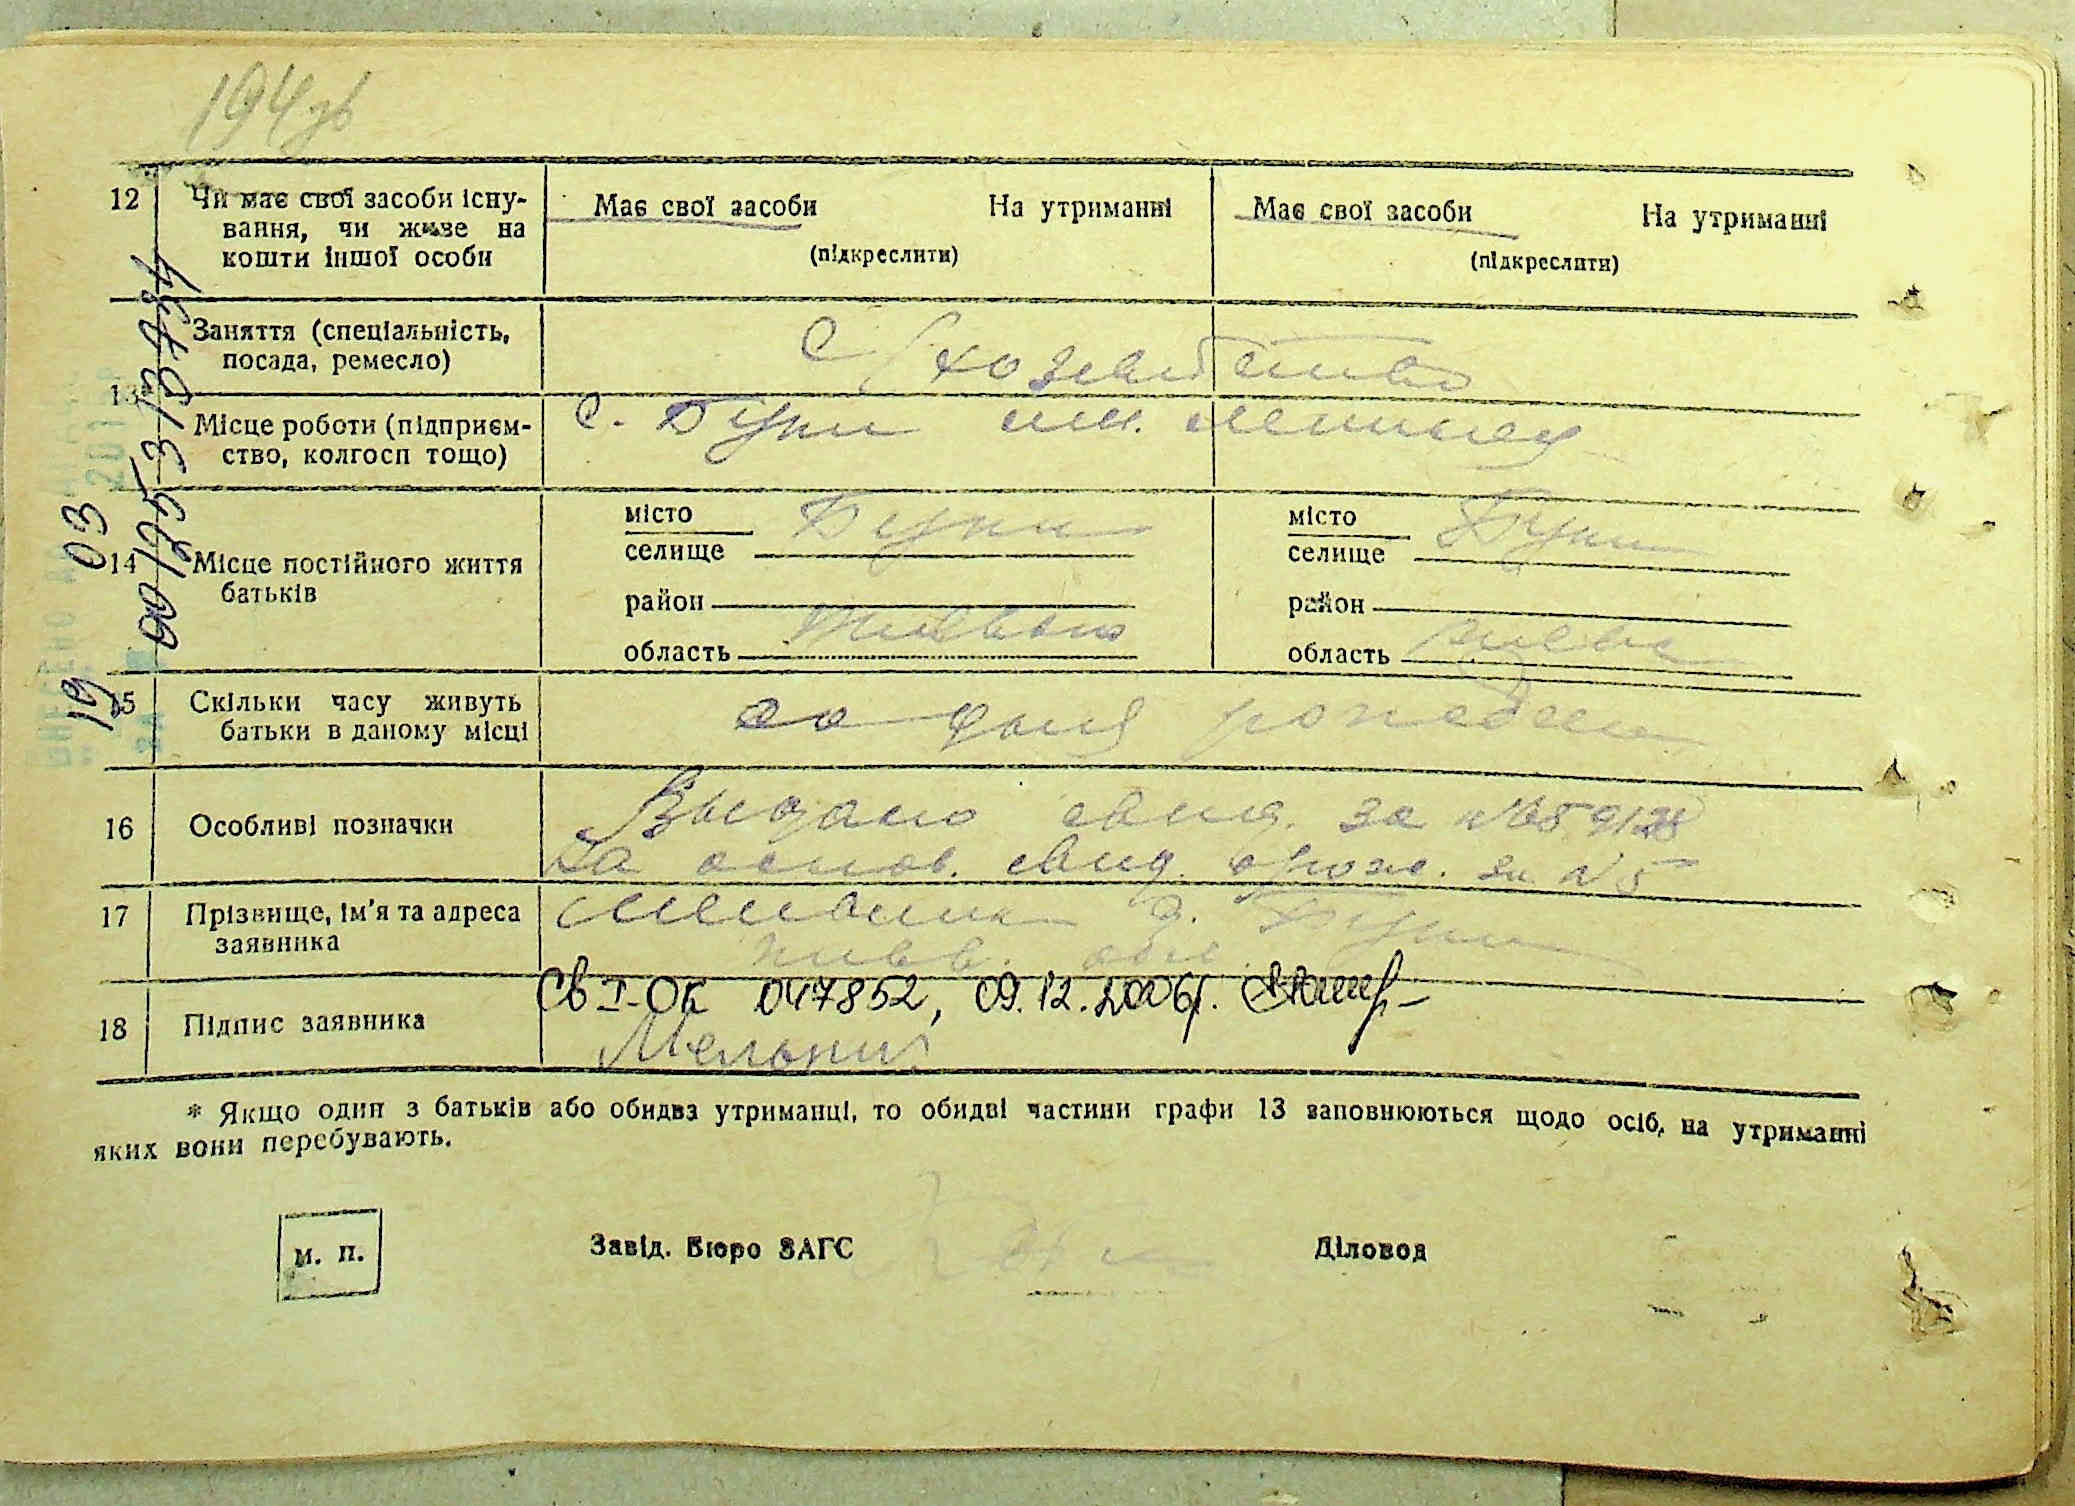 194зв
12 Чи має свої засоби існу-
вання, чи живе на
кошти іншої особи
Має свої засоби На утриманні
(підкреслити)
Має свої засоби На утриманні
(підкреслити)
13*
Заняття (спеціальність,
посада, ремесло)
С/хозяйство
Місце роботи (підприєм-
ство, колгосп тощо)
с. Буки им. Ленина
14 Місце постійного життя
батьків
місто
селище Буки
район
область
місто
селище Буки
район
область
15 Скільки часу живуть
батьки в даному місці
со дня
16 Особливі позначки
Выдано свид. за №
На основ. свид. о рожд. за №5
17 Прізвище, ім'я та адреса
заявника
Мельник с. Буки
Киев. обл.
Св I-ОК 047852, 09.12.2006р.
18 Підпис заявника
Мельник
* Якщо один з батьків або обидва утриманці, то обидві частини графи 13 заповнюються щодо осіб, на утриманні
яких вони перебувають.
М. П.
Завід. Бюро ЗАГС
Діловод
19 03